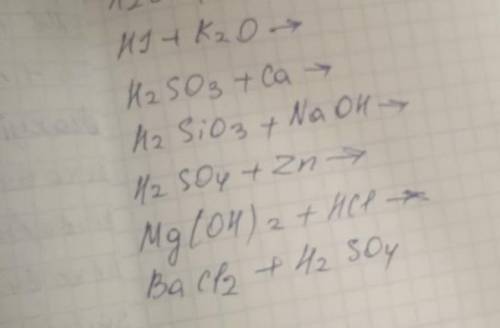 HJ + K2O →
H2SO3 + Ca →
H2SiO3 + NaOH →
H2SO4 + Zn →
Mg(OH)2 + HCl →
BaCl2 + H2SO4